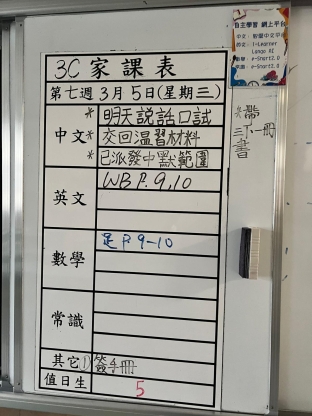 3C 家課表
第七週 3月5日(星期三)
中文
*明天說話口試
*交回溫習材料
*已派發中默範圍
英文
WB P. 9,10
數學
足 P. 9-10
常識
其它
① 簽手冊
值日生
5
自主學習 網上平台
中文：智愛中文平台
英文：i-Learner
數學：e-Smart2.0
常識：e-Smart2.0
*帶
三下一冊
書